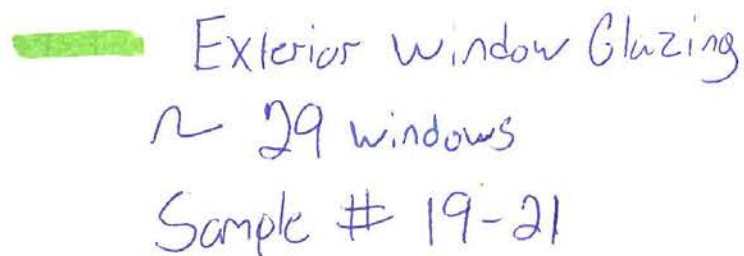 Exterior Window Glazing
~ 29 windows
Sample # 19-21